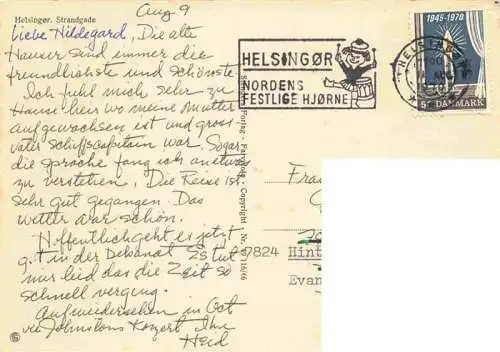 Helsingør. Strandgade
Aug 9
Liebe Hildegard, Die alte
Häuser sind immer die
freundlichste und schönste.
Ich fühl mich sehr zu
Hause hier wo meine Mutter
aufgewachsen ist und gross-
vater Schiffscapitain war. Sogar
die sprache fang ich an etwas
zu verstehen. Die Reise ist
sehr gut gegangen. Das
wetter war schön.
Hoffentlich geht es jetzt
gut in der Dekanat. Es tut
mir leid das die Zeit so
schnell verging.
Aufwiedersehen in Oct
Johnstons Konzert Ihr
HELSINGØR
NORDENS
FESTLIGE HJØRNE
HELSINGØR
1945-1970
DANMARK
Copyright
7824
Hint
Evan